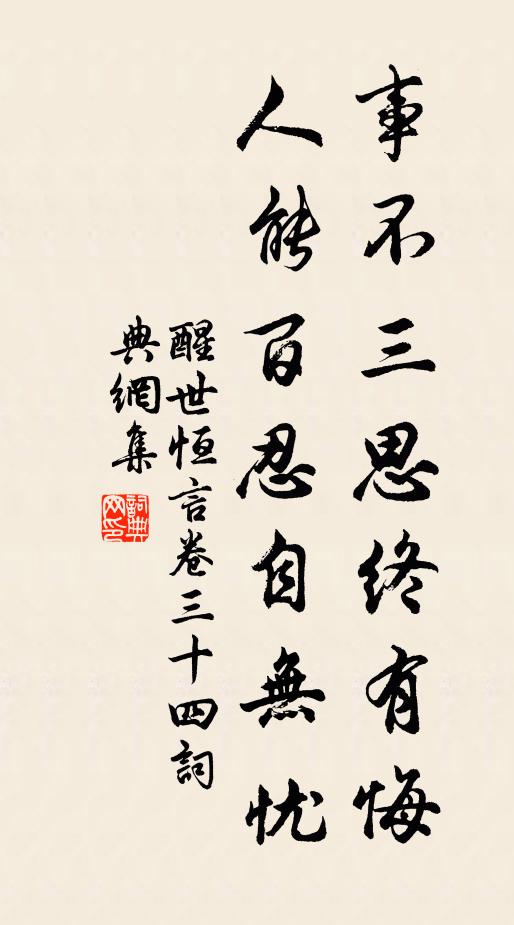 事不三思終有悔
人能百忍自無忧
醒世恒言卷三十四詞
典網集
詞典网印